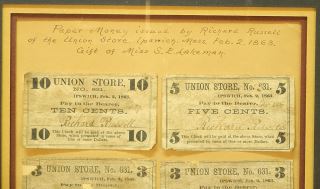 Paper Money issued by Richard Russell
of the Union Store, Ipswich, Mass. Feb. 2, 1863.
Gift of Miss S. E. Lakeman.
10 UNION STORE, 10
NO. 631.
IPSWICH, Feb. 2, 1863.
Pay to the Bearer,
TEN CENTS.
Richard Russell
This Check will be paid at the above
Store, when presented in sums of One
or more Dollars.
10 10
5 UNION STORE, No. 631. 5
IPSWICH, Feb. 2, 1863.
Pay to the Bearer,
FIVE CENTS.
Richard Russell
This Check will be paid at the above Store, when
presented in sums of One or more Dollars.
5 5
3 UNION STORE, No. 631. 3
IPSWICH, Feb. 2, 1863.
Pay to the Bearer
3 UNION STORE, No. 631. 3
IPSWICH, Feb. 2, 1863.
Pay to the Bearer